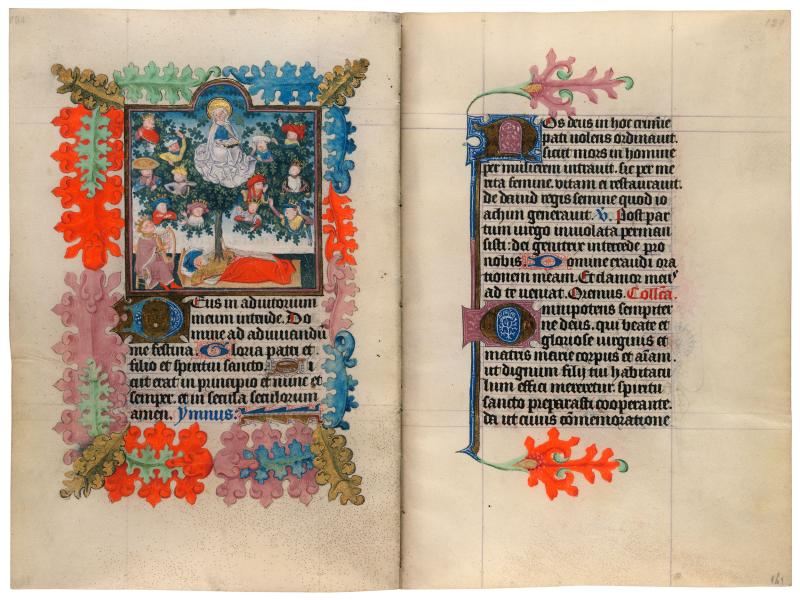 Deus in adiutorium
meum intende. Do
mine ad adiuuandū
me festina. Gloria patri et
filio et spiritui sancto. Si
cut erat in principio et nunc et
semper. et in secula seculorum
amen. Ymnus:
Nos deus in hoc crimīe
pati uolens ordinauit.
sicut mors in homine
per mulierem intrauit. sic per me
rita femine. vitam ei restaurauit.
de dauid regis semine quod io
achim generauit. V. Post par
tum uirgo inuiolata perman
sisti: dei genitrix intercede pro
nobis. Domine exaudi ora
tionem meam. Et clamor meꝰ
ad te ueniat. Oremus. Collc̄a.
Omnipotens sempiter
ne deus. qui beate et
gloriose uirginis et
matris marie corpus et aīam.
ut dignum filij tui habitacu
lum effici mereretur. spiritu
sancto preparasti cooperante.
da ut cuius cōmemoratione